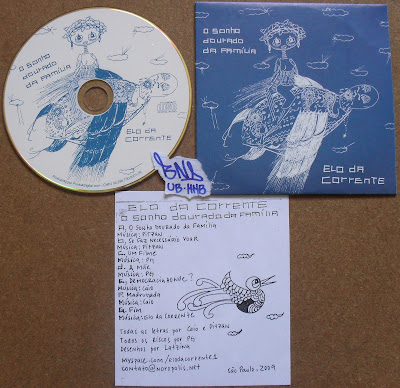 O SONHO
DOURADO
DA FAMÍLIA
ELO DA
CORRENTE
O SONHO
DOURADO
DA FAMÍLIA
ELO DA
CORRENTE
ELO DA CORRENTE
O SONHO DOURADO DA FAMÍLIA
A. O SONHO DOURADO DA FAMÍLIA
MÚSICA: PITZAN
B. SE FAZ NECESSÁRIO VOAR
MÚSICA: PITZAN
C. UM FILME
MÚSICA: PG
D. A MÃE
MÚSICA: PG
E. DEMOCRACIA HONDE?
MÚSICA: CAIO
F. MADRUGADA
MÚSICA: CAIO
G. FIM
MÚSICA: ELO DA CORRENTE
TODAS AS LETRAS POR CAIO E PITZAN
TODOS OS RISCOS POR PG
DESENHOS POR LATZINA
MYSPACE.COM/ELODACORRENTE1
CONTATO@NOROPOLIS.NET
SÃO PAULO, 2009